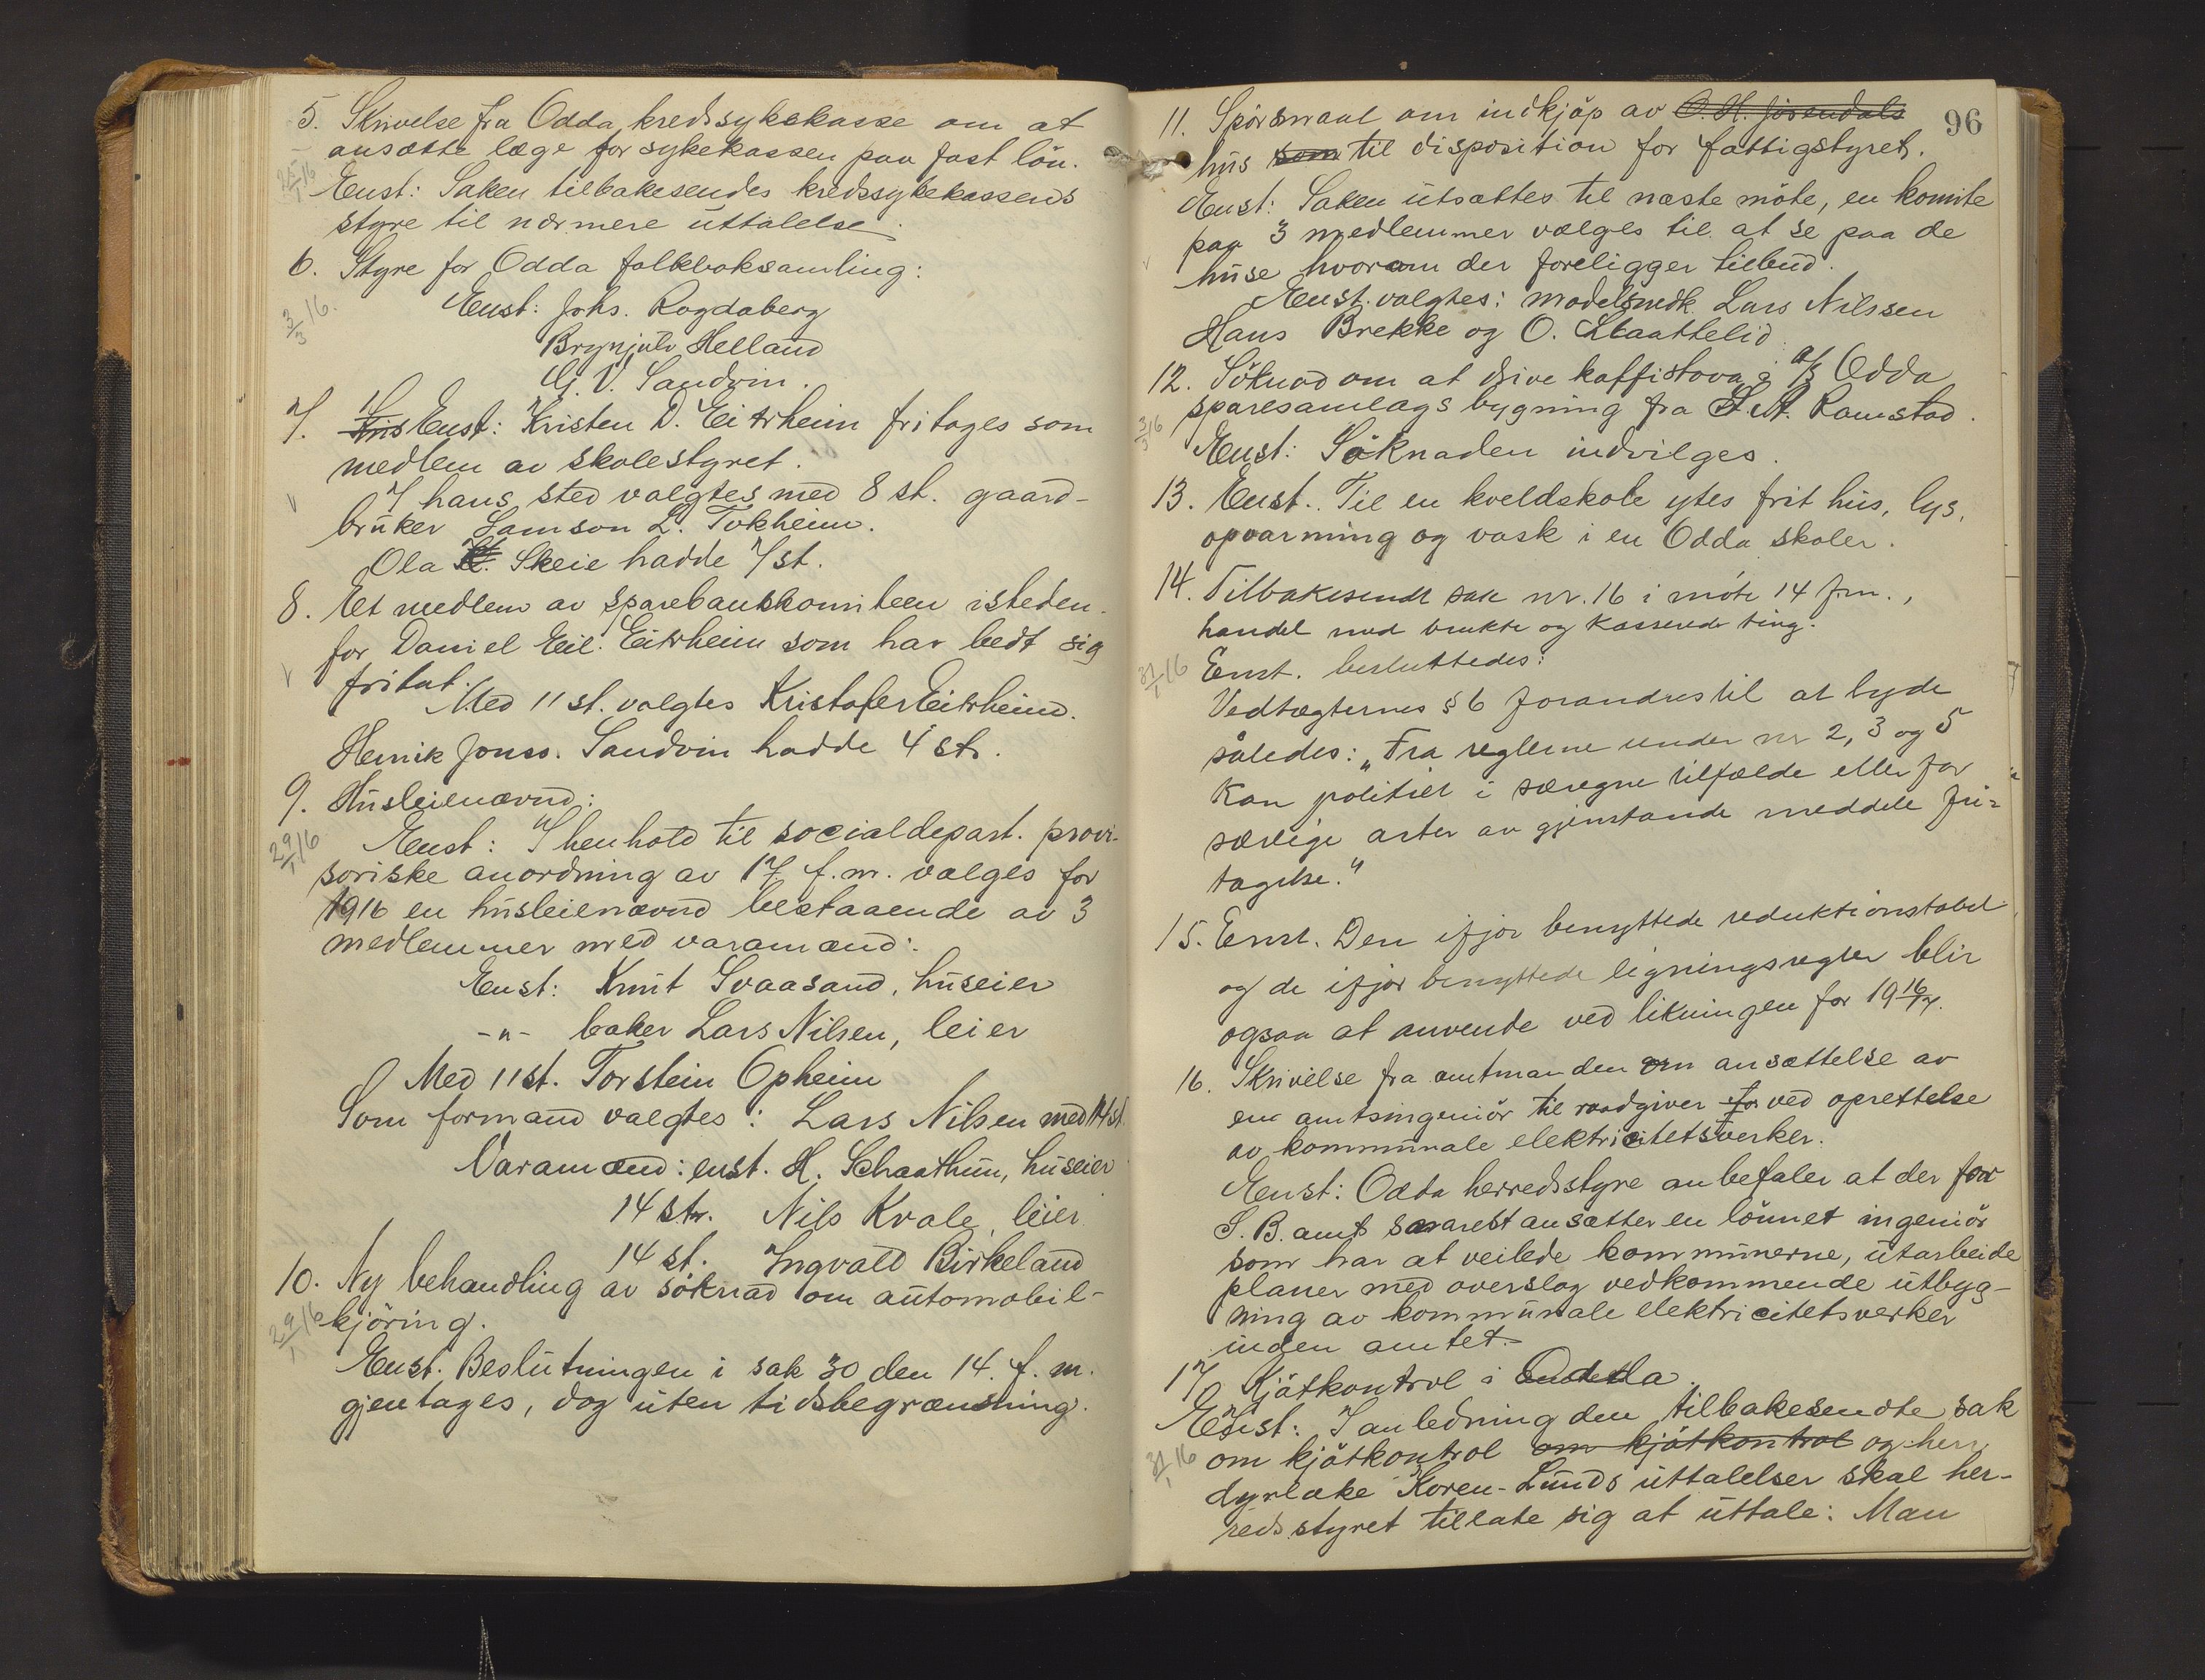 5. Skrivelse fra Odda kredssykekasse om at
ansætte læge for sykekassen paa fast lön.
25/1 16
Enst: Saken tilbakesendes kredssykekassens
styre til nærmere uttalelse.
6. Styre for Odda folkboksamling:
3/3 16.
Enst: Johs. Rogdaberg
Brynjulv Helland
G. V. Sandvin.
7. Enst: Kristen D. Eitrheim fritages som
medlem av skolestyret.
I hans sted valgtes med 8 st. gaard-
bruker Samson L. Tokheim.
Ola Skeie hadde 7 st.
8. Et medlem av sparebankkomiteen isteden-
for Daniel Eil. Eitrheim som har bedt sig
fritat.
Med 11 st. valgtes Kristofer Eitrheim.
Henrik Jonss. Sandvin hadde 4 st.
9. Husleienævnd:
29/1 16
Enst: I henhold til socialdepart. provi-
soriske anordning av 17 f.m. vælges for
1916 en husleienævnd bestaaende av 3
medlemmer med varamænd:
Enst: Knut Svaasand, huseier
-"- baker Lars Nilsen, leier
Med 11 st. Torstein Opheim
Som formand valgtes: Lars Nilsen med 14 st
Varamænd: enst. H. Schaathun, huseier
14 st. Nils Kvale, leier
14 st. Ingvald Birkeland
10. Ny behandling av söknad om automobil-
29/1 16
kjöring.
Enst. Beslutningen i sak 30 den 14. f. m.
gjentages, dog uten tidsbegrænsning.
96
11. Spörsmaal om indkjöp av O. H. Jösendals
hus som til disposition for fattigstyret.
Enst: Saken utsættes til næste möte, en komite
paa 3 medlemmer vælges til at se paa de
huse hvorom der foreligger tilbud.
Enst. valgtes: modelsnedk. Lars Nilssen
Hans Brekke og O. Staattelid.
12. Söknad om at drive kaffistova i A/S Odda
sparesamlags bygning fra Ramstad.
3/3 16
Enst: Söknaden indvilges.
13. Enst. Til en kveldskole ytes frit hus, lys,
opvarming og vask i en Odda skoler.
14. Tilbakesendt sak nr. 16 i möte 14 f.m.,
handel med brukte og kasserede ting.
31/1 16
Enst. besluttedes:
Vedtægternes § 6 forandres til at lyde
således: „Fra reglerne under nr 2, 3 og 5
kan politiet i særegne tilfælde eller for
særlige arter av gjenstande meddele fri=
tagelse."
15. Enst. Den ifjor benyttede reduktionstabel
og de ifjor benyttede ligningsregler blir
ogsaa at anvende ved likningen for 1916/17.
16. Skrivelse fra amtmanden om ansættelse av
en amtsingeniör til raadgiver for ved oprettelse
av kommunale elektricitetsverker.
Enst: Odda herredsstyre anbefaler at der for
S. B. amt snarest ansætter en lönnet ingeniör
som har at veilede kommunerne, utarbeide
planer med overslag vedkommende utbyg-
ning av kommunale elektricitetsverker
inden amtet.
17 Kjötkontrol i Odda.
Enst: I anledning den tilbakesendte sak
31/1 16
om kjötkontrol om kjötkontrol og herr
dyrlæke Koren-Lunds uttalelser skal her-
redsstyret tillate sig at uttale: Man